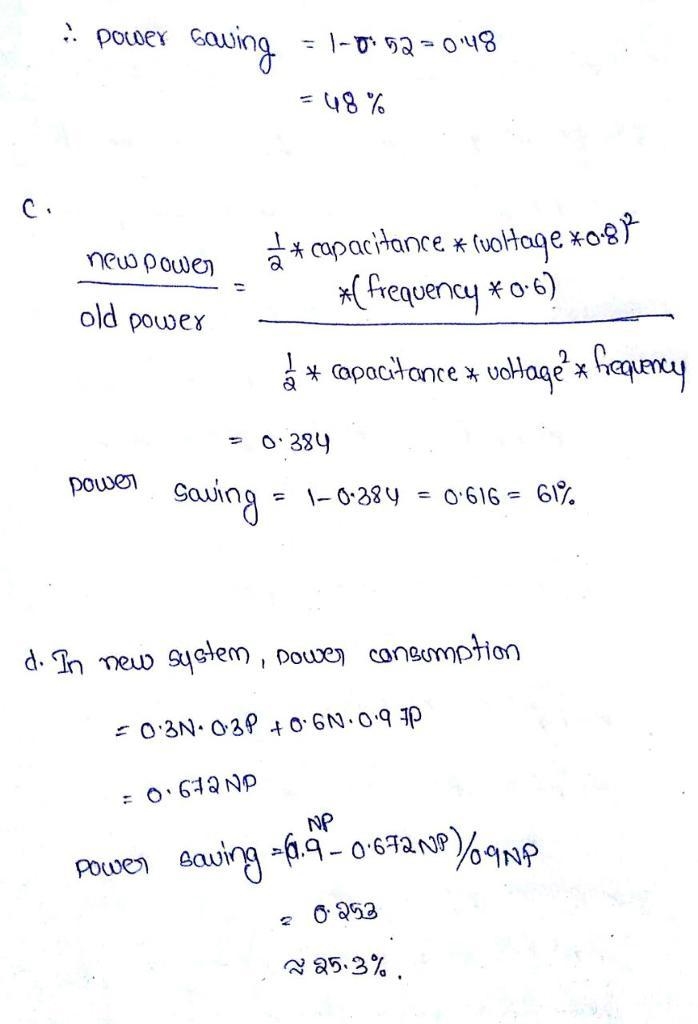 ∴ power saving = 1-0.52 = 0.48
= 48 %
c.
new power / old power = 1/2 * capacitance * (voltage * 0.8)² * (frequency * 0.6) / 1/2 * capacitance * voltage² * frequency
= 0.384
power saving = 1-0.384 = 0.616 = 61%
d. In new system, power consumption
= 0.3N. 0.3P + 0.6N. 0.97P
= 0.672 NP
power saving = (0.9 NP - 0.672 NP)/0.9NP
= 0.253
≈ 25.3%.